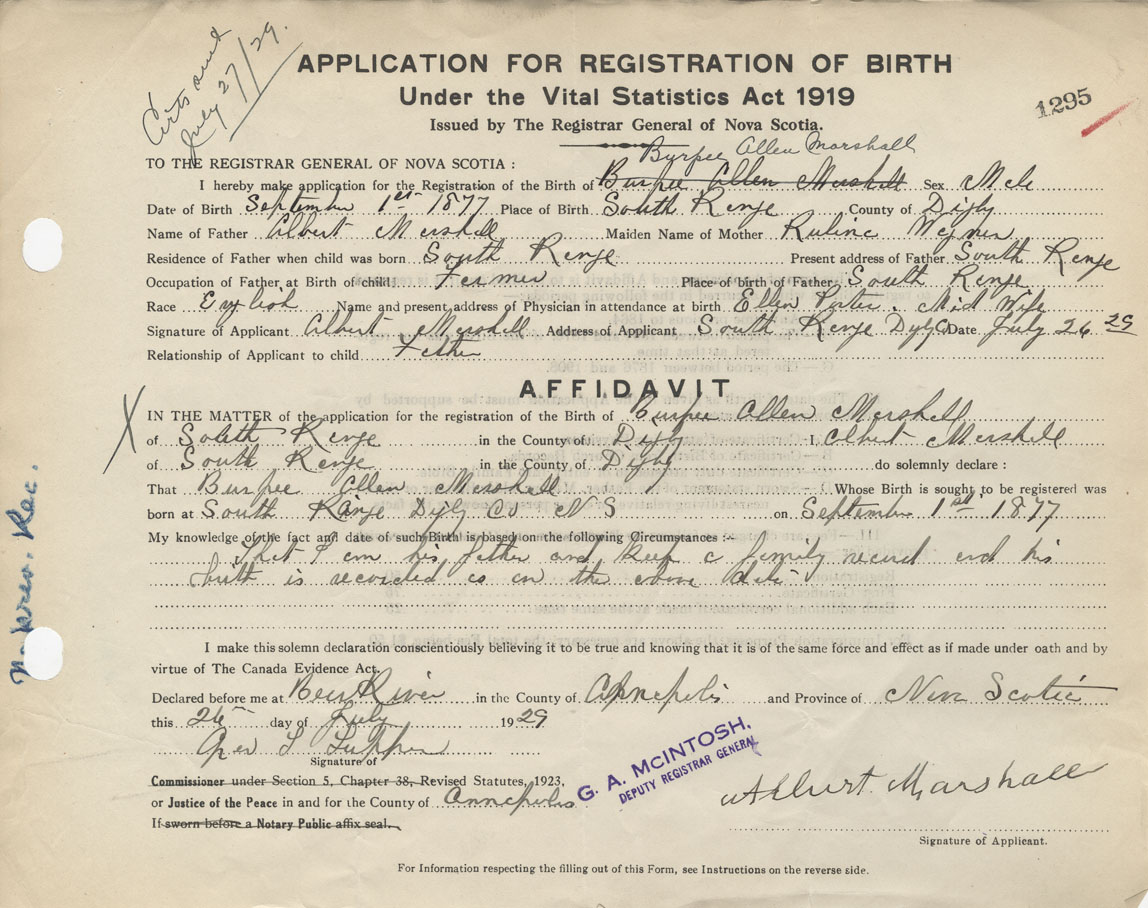 Certs sent
July 27/29.
APPLICATION FOR REGISTRATION OF BIRTH
Under the Vital Statistics Act 1919
1295
Issued by The Registrar General of Nova Scotia.
Burpee Allen Marshall
TO THE REGISTRAR GENERAL OF NOVA SCOTIA :
I hereby make application for the Registration of the Birth of Burpee Allen Marshall Sex Male
Date of Birth September 1st 1877 Place of Birth South Range County of Digby
Name of Father Albert Marshall Maiden Name of Mother Wagner
Residence of Father when child was born South Range Present address of Father South Range
Occupation of Father at Birth of child Farmer Place of birth of Father South Range
Race English Name and present address of Physician in attendance at birth Ellen Mid Wife
Signature of Applicant Albert Marshall Address of Applicant South Range Digby Co Date July 26 29
Relationship of Applicant to child Father
AFFIDAVIT
X
IN THE MATTER of the application for the registration of the Birth of Burpee Allen Marshall
of South Range in the County of Digby I, Albert Marshall
of South Range in the County of Digby do solemnly declare :
That Burpee Allen Marshall Whose Birth is sought to be registered was
born at South Range Digby Co N S on September 1st 1877
My knowledge of the fact and date of such Birth is based on the following Circumstances :-
That I am his father and keep a family record and his
birth is recorded as on the above date
I make this solemn declaration conscientiously believing it to be true and knowing that it is of the same force and effect as if made under oath and by
virtue of The Canada Evidence Act.
Declared before me at Bear River in the County of Annapolis and Province of Nova Scotia
this 26 day of July 1929
Signature of
Commissioner under Section 5, Chapter 38, Revised Statutes, 1923,
or Justice of the Peace in and for the County of Annapolis
If sworn before a Notary Public affix seal.
G. A. MCINTOSH,
DEPUTY REGISTRAR GENERAL
Albert Marshall
Signature of Applicant.
For Information respecting the filling out of this Form, see Instructions on the reverse side.